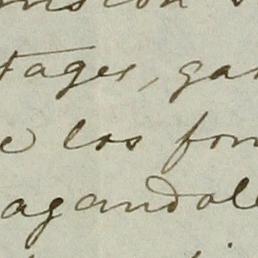 tages, ga
e los fon
agandole